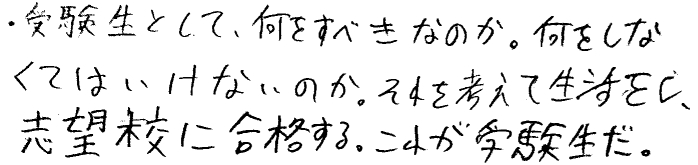 ・受験生として、何をすべきなのか。何をしな
くてはいけないのか。それを考えて生活をし、
志望校に合格する。これが受験生だ。